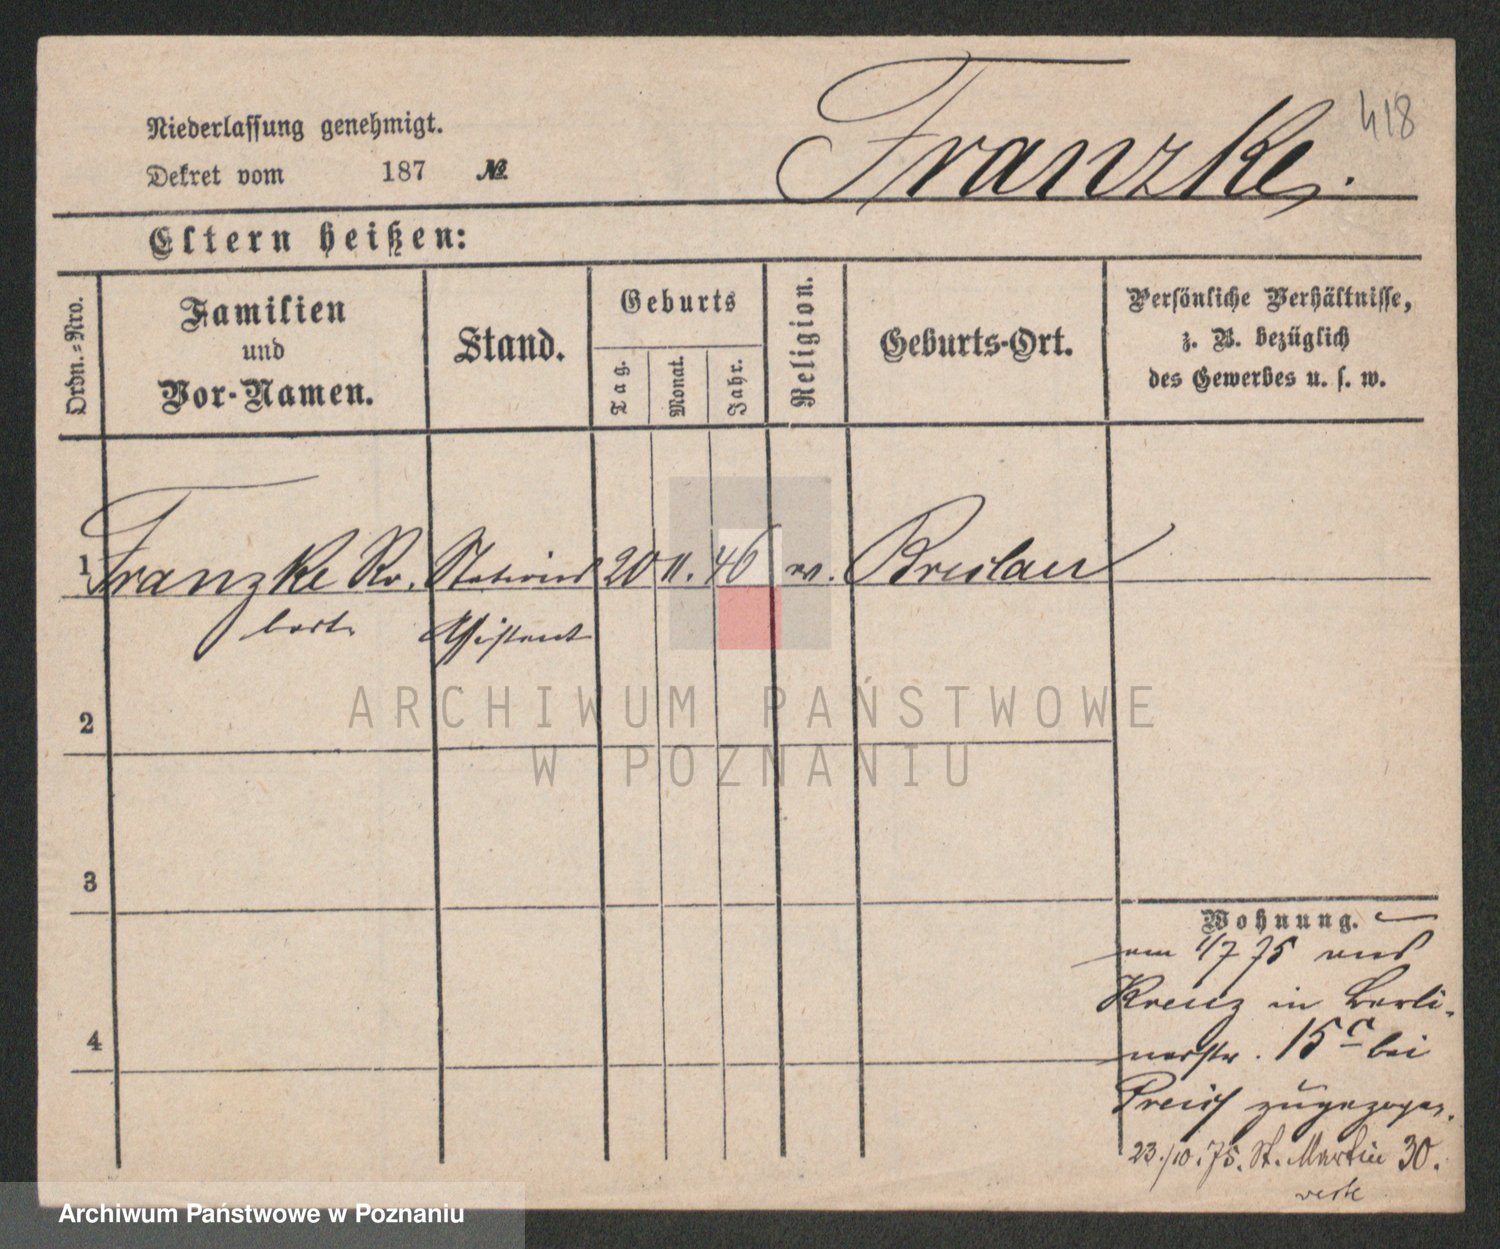 418
Franzke.
Niederlassung genehmigt.
Dekret vom 187 №
Eltern heißen:
Ordn.=Nro.
Familien
und
Vor-Namen.
Stand.
Geburts
Tag.
Monat.
Jahr.
Religion.
Geburts-Ort.
Persönliche Verhältnisse,
z. B. bezüglich
des Gewerbes u. s. w.
1 Franzke Ro. Stations 20 11. 46 ev. Breslau
bert. Assistent
2
3
4
Wohnung.
am 1/7 75 aus
Kreuz in Berli-
nerstr. 15c bei
Preuß zugezogen.
23./10. 75. St. Martin 30.
ARCHIWUM PAŃSTWOWE
W POZNANIU
Archiwum Państwowe w Poznaniu